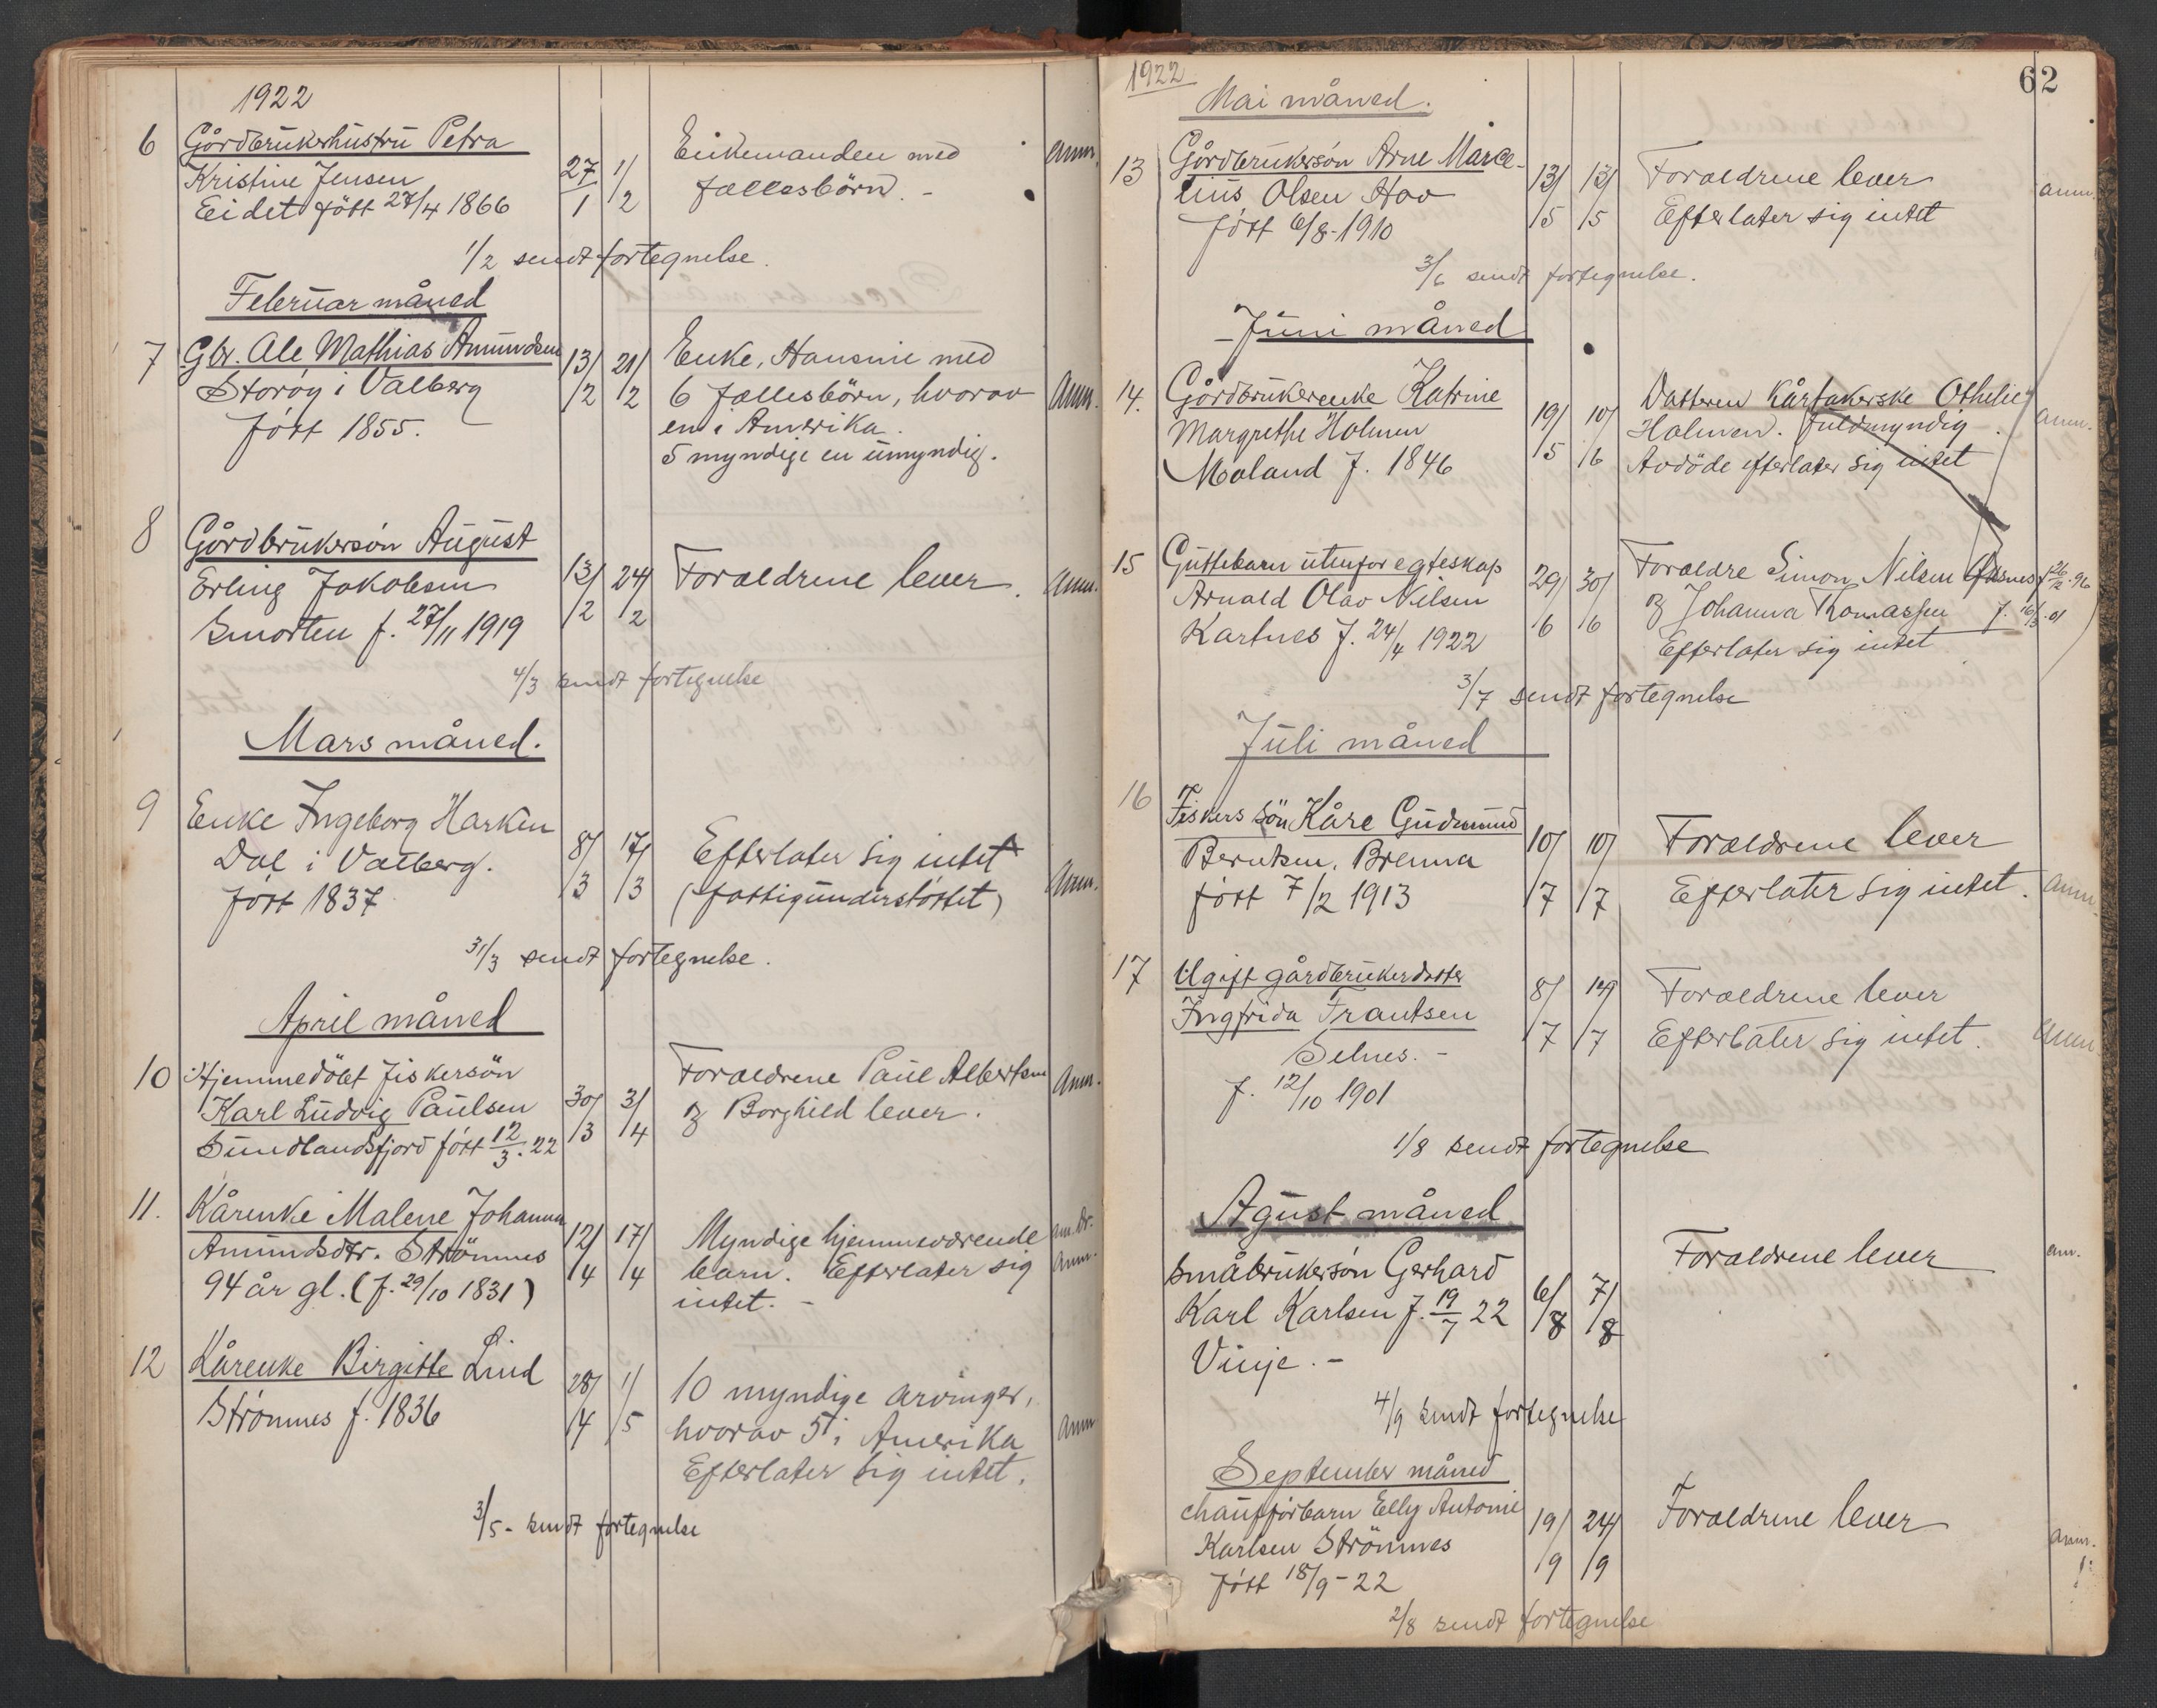 1922
6 Gårdbrukerhustru Petra
Kristine Jensen
Eidet født 27/4 1866
27/1 1/2
Enkemanden med
fællesbörn. -
anm.
1/2 sendt fortegnelse.
Februar måned
7 Gbr. Ale Mathias Amundsen
Storöy i Valberg
född 1855.
13/2 21/2
Enke, Hansine med
6 fællesbörn, hvorav
en i Amerika.
5 myndige en umyndig.
Anm.
8 Gårdbrukersön August
Erling Jakobsen
Smorten f. 27/11 1919
13/2 24/2
Foraeldrene lever.
Anm.
4/3 sendt fortegnelse
Mars måned.
9 Enke Ingeborg Harken
Dal i Valberg.
född 1837
8/3 17/3
Efterlater sig intet
(fattigunderstöttet)
Anm.
31/3 sendt fortegnelse.
April måned
10 Hjemmedöbt fiskersön
Karl Ludvig Paulsen
Sundlandsfjord född 12/3.22
30/3 3/4
Foraeldrene Paul Albertsen
og Borghild lever.
Anm.
11. Kårenke Malene Johanna
Amundsdtr. Strömnes
94 år gl. (f. 29/10 1831)
12/4 17/4
Myndige hjemmeværende
barn. Efterlater sig
intet. -
Anm.
12 Kårenke Birgitte Lind
Strömnes f. 1836
28/4 1/5
10 myndige arvinger,
hvorav 5 i Amerika
Efterlater sig intet.
Anm
3/5 - sendt fortegnelse
62
1922
Mai måned.
13 Gårdbrukersön Arne Marce-
lius Olsen Hov
född 6/8-1910
13/5 13/5
Foraeldrene lever
Efterlater sig intet
anm.
3/6 sendt fortegnelse.
Juni måned
14. Gårdbrukerenke Katrine
Margrethe Holmen
Moland f. 1846
19/5 10/6
Datteren Kårtakerske Othelie
Holmen. fuldmyndig.
Avdöde efterlater sig intet
anm.
15 Guttebarn utenfor egteskap
Arnald Olav Nilsen
Kartnes f. 24/4 1922
29/6 30/6
Foraeldre Simon Nilsen
og Johanna Thomassen f. 16/3.01
Efterlater sig intet
3/7 sendt fortegnelse
Juli måned
16 Fiskers sön Kåre Gudmund
Berntsen, Brenna
född 7/2 1913
10/7 10/7
Foraeldrene lever
Efterlater sig intet.
Anm.
17 Ugift gårdbrukerdatter
Ingfrida Frantsen
Selnes. -
f. 12/10 1901
8/7 /7
Foraeldrene lever
Efterlater sig intet.
Anm
1/8 sendt fortegnelse
Agust måned
Småbrukersön Gerhard
Karl Karlsen f. 19/7 22
Vinje. -
6/8 7/8
Foraeldrene lever
anm.
4/9 sendt fortegnelse
September måned
chaufförbarn Elly Antonie
Karlsen Strömnes
född 18/9-22
19/9 24/9
Foraeldrene lever
anm.
2/8 sendt fortegnelse